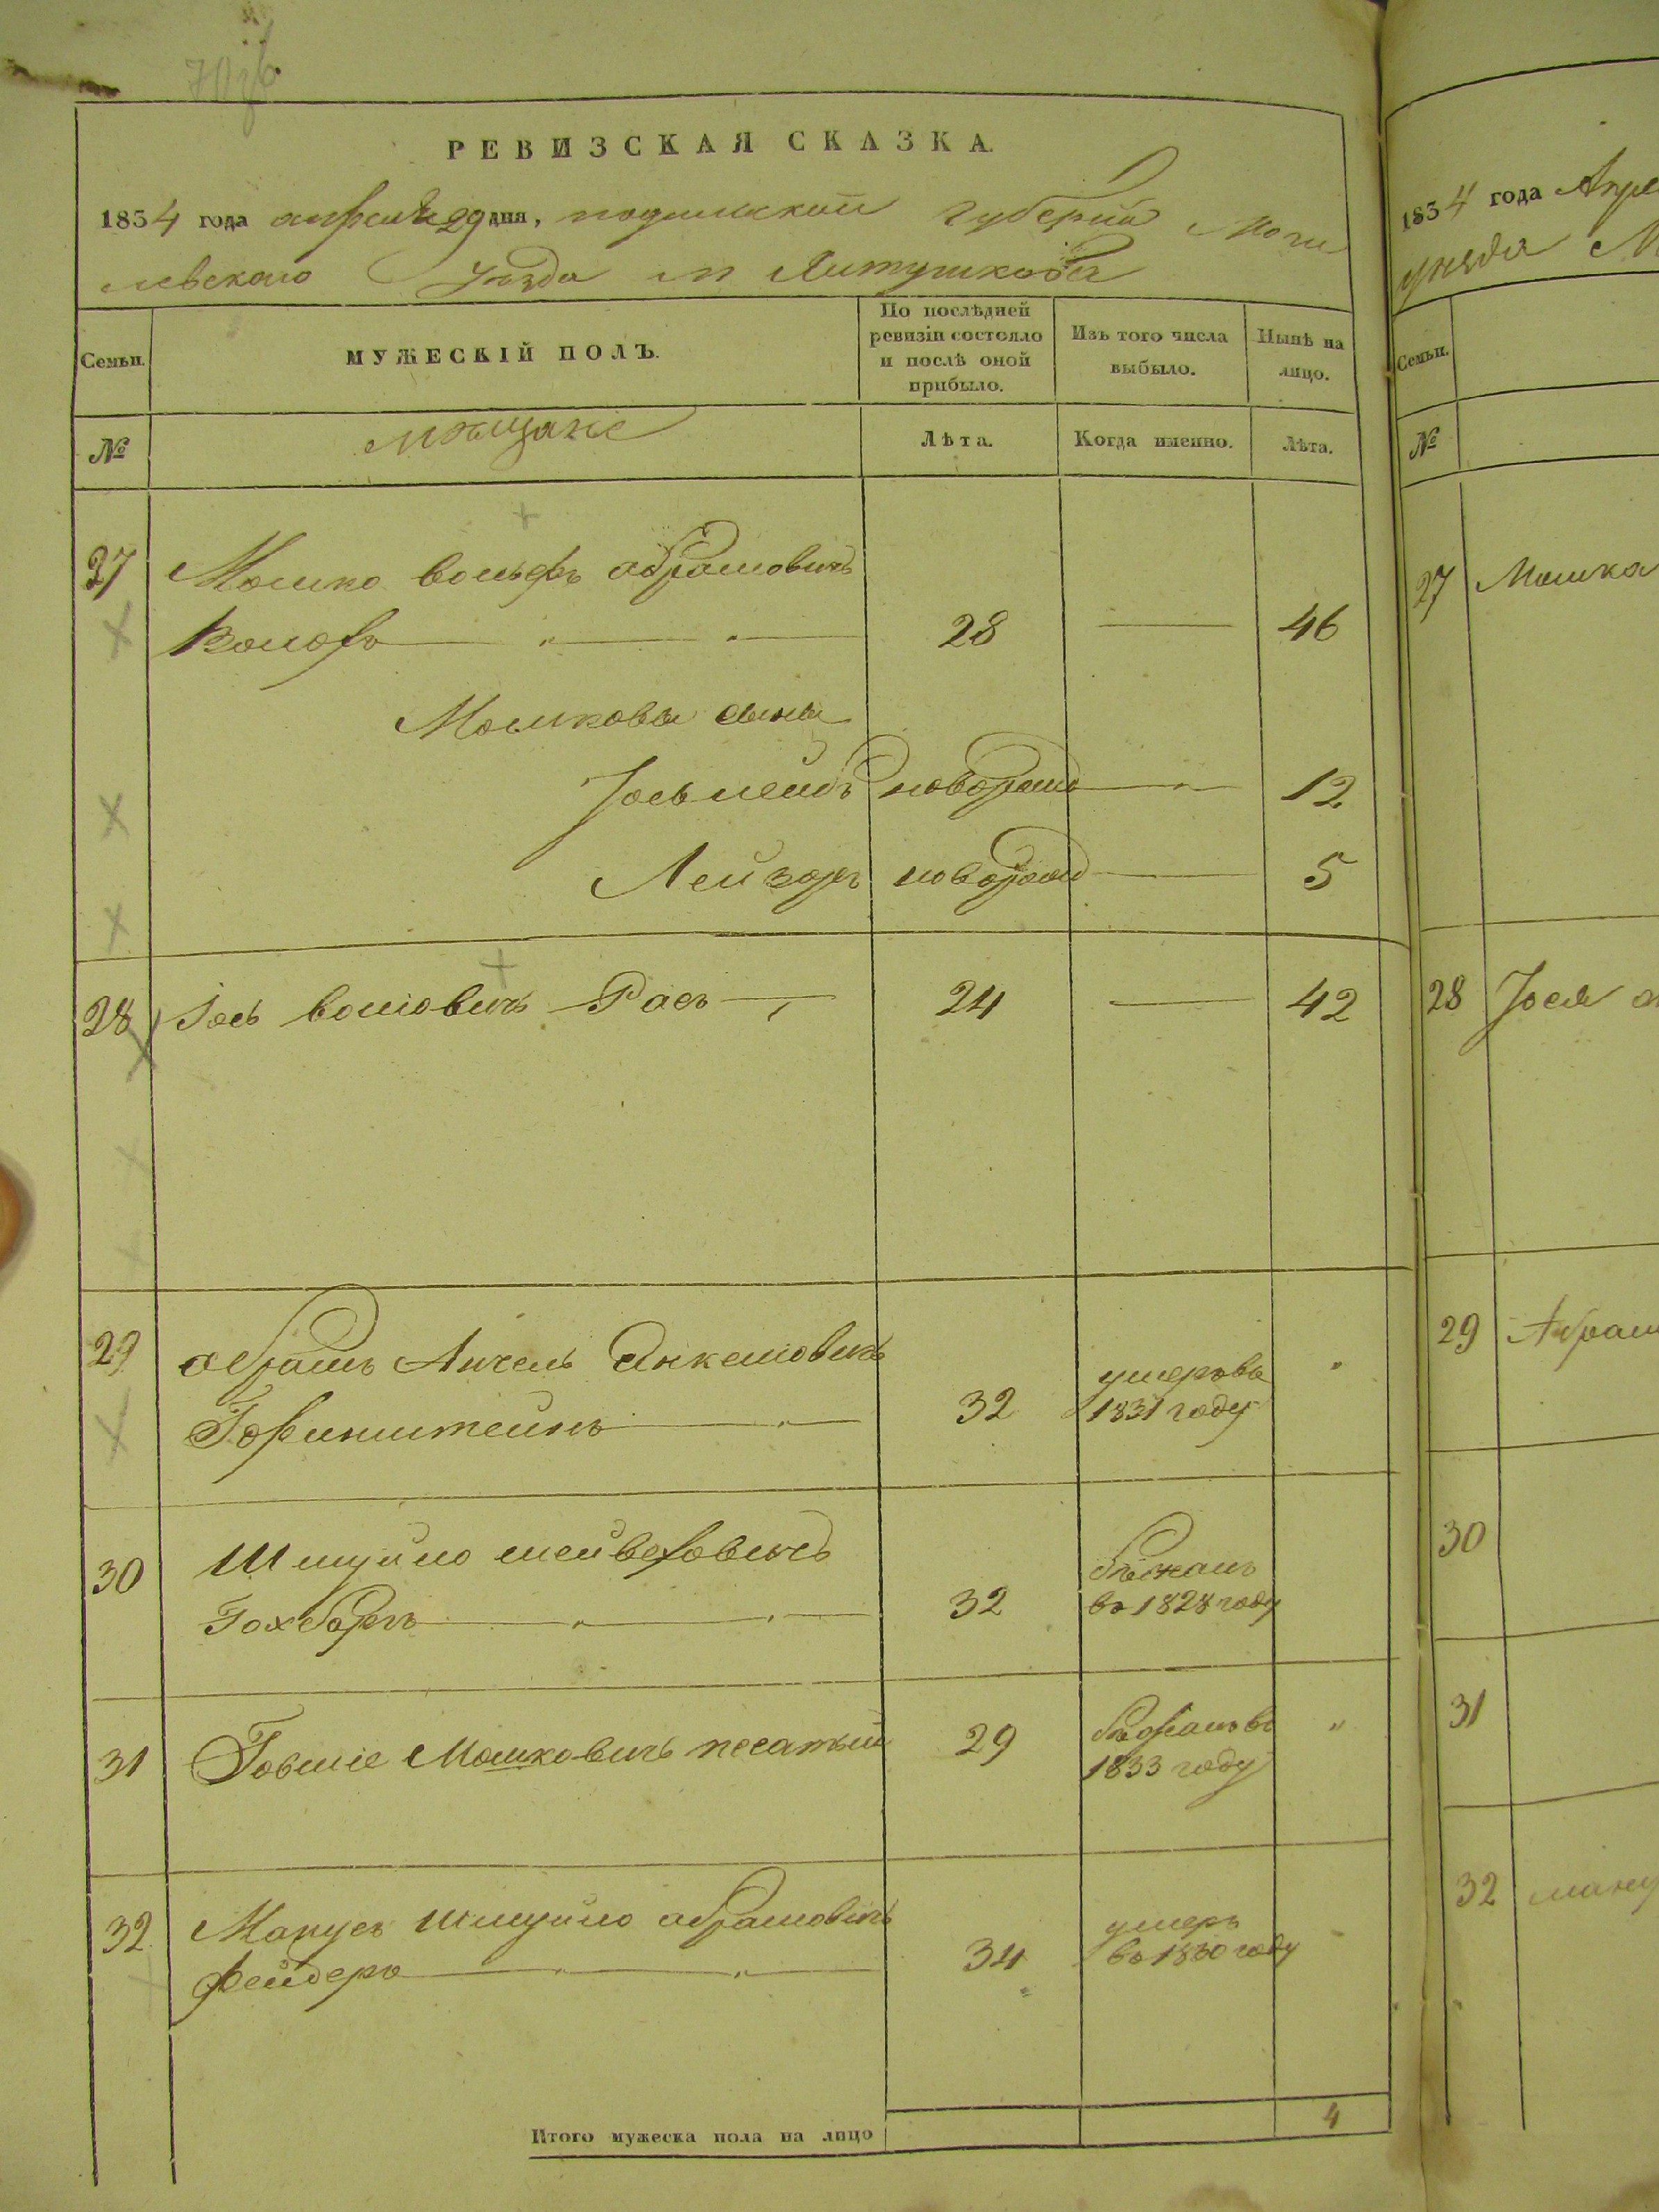 РЕВИЗСКАЯ СКАЗКА.
1834 года апреля 29 дня, подольской губернии Моги
левского уезда м Литушковъ
Семьи.
МУЖЕСКІЙ ПОЛЪ.
По послѣдней
ревизіи состояло
и послѣ оной
прибыло.
Изъ того числа
выбыло.
Нынѣ на
лицо.
№
мѣщане
Лѣта.
Когда именно.
Лѣта.
27 Мошко вольфъ абрамовичъ
28 46
Мошковы сыны
Іось новорожд 12
Лейзоръ новорожд 5
28 Іось волловичъ Расъ 24 42
29 абрамъ Анчель Янкелiовичъ
Горинштейнъ 32 умеръ въ
1831 году
30 Шмуйло шейвеховичъ
Гохбергъ 32
въ 1828 году
31 Мошковичъ песатый 29
1833 году
32 Манусъ шмуйло абрамовичъ
фейдеръ 34 умеръ
въ 1830 году
Итого мужеска пола на лицо 4
1834 года Апре
уезда М
Семьи.
№
27 Мошка
28 Іося
29 Абрам
30
31
32 ману